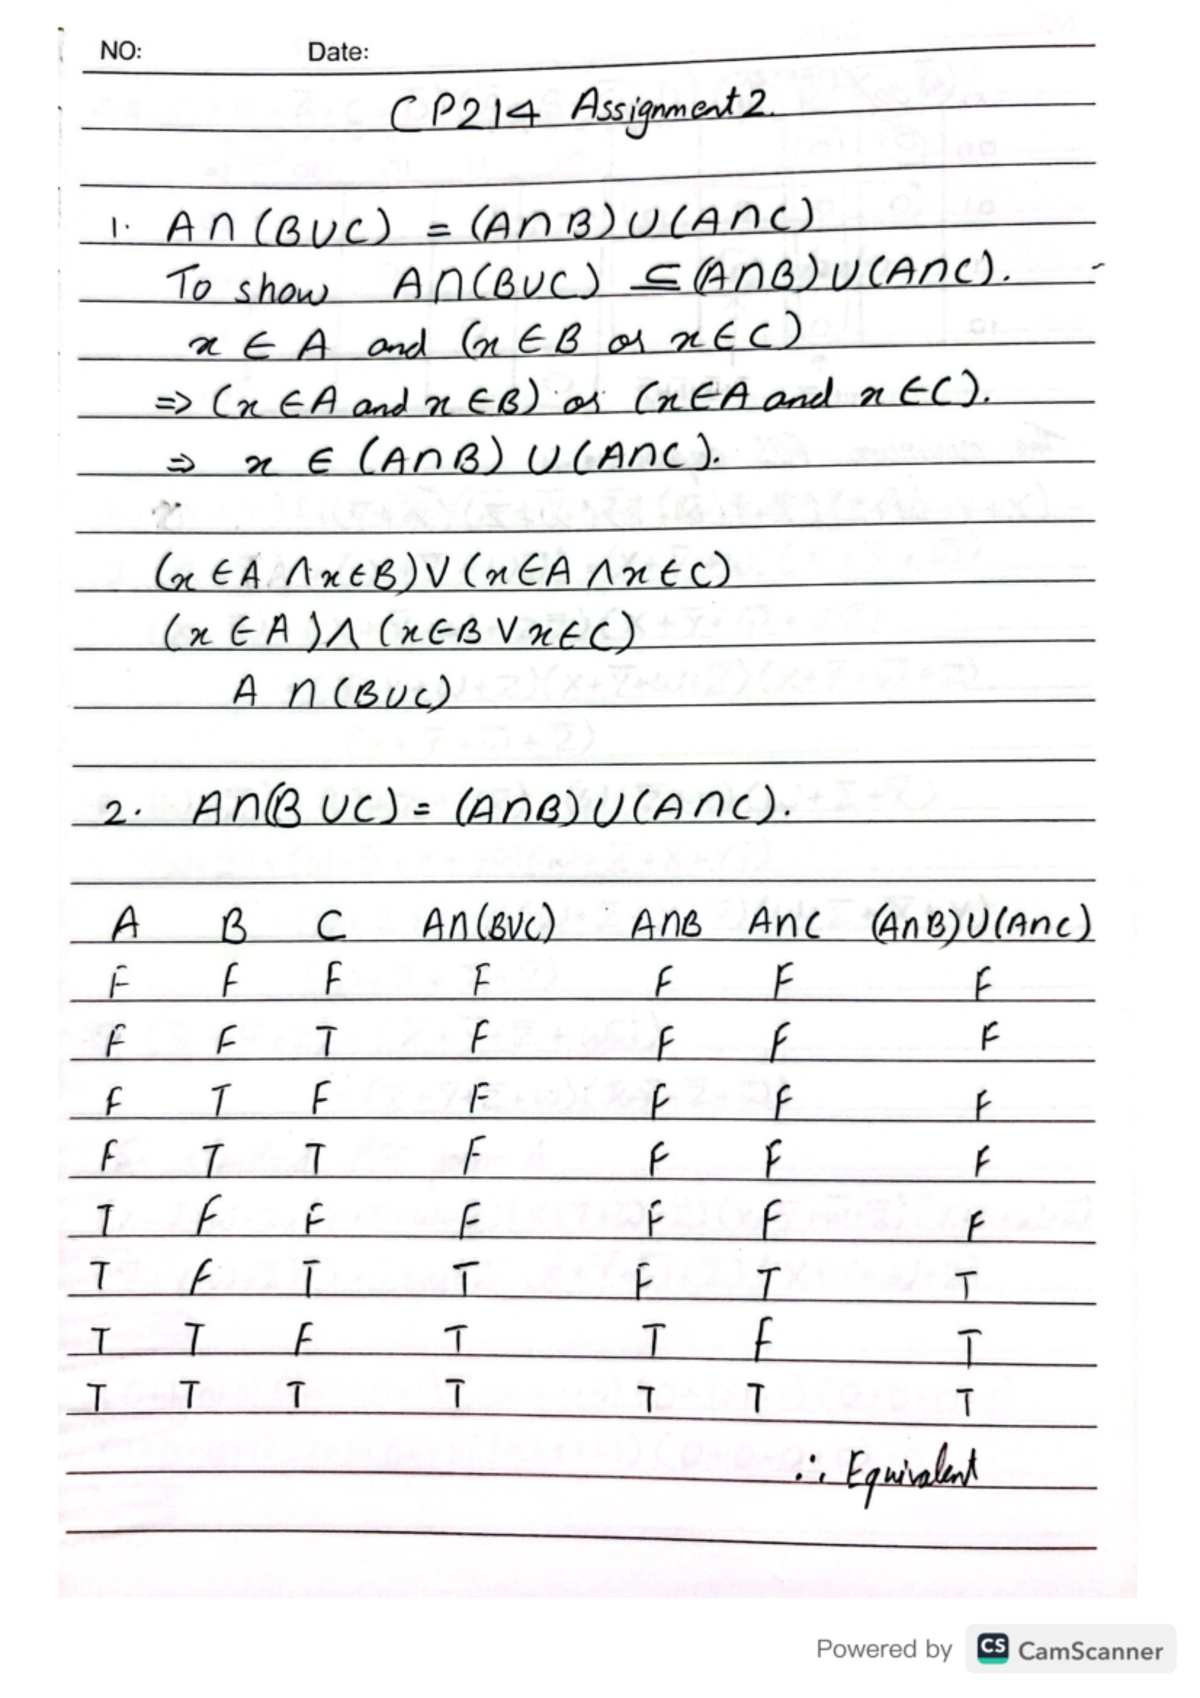 NO: Date:
CP214 Assignment 2.
1. A∩(B∪C) = (A∩B)∪(A∩C)
To show A∩(B∪C) ⊆ (A∩B)∪(A∩C).
x ∈ A and (x ∈ B or x ∈ C)
=> (x ∈ A and x ∈ B) or (x ∈ A and x ∈ C).
=> x ∈ (A∩B) ∪ (A∩C).
(x ∈ A ∧ x ∈ B) ∨ (x ∈ A ∧ x ∈ C)
(x ∈ A) ∧ (x ∈ B ∨ x ∈ C)
A ∩ (B∪C)
2. A∩(B ∪C) = (A∩B)∪(A∩C).
A B C A∩(B∪C) A∩B A∩C (A∩B)∪(A∩C)
F F F F F F F
F F T F F F F
F T F F F F F
F T T F F F F
T F F F F F F
T F T T F T T
T T F T T F T
T T T T T T T
∴ Equivalent
Powered by CS CamScanner